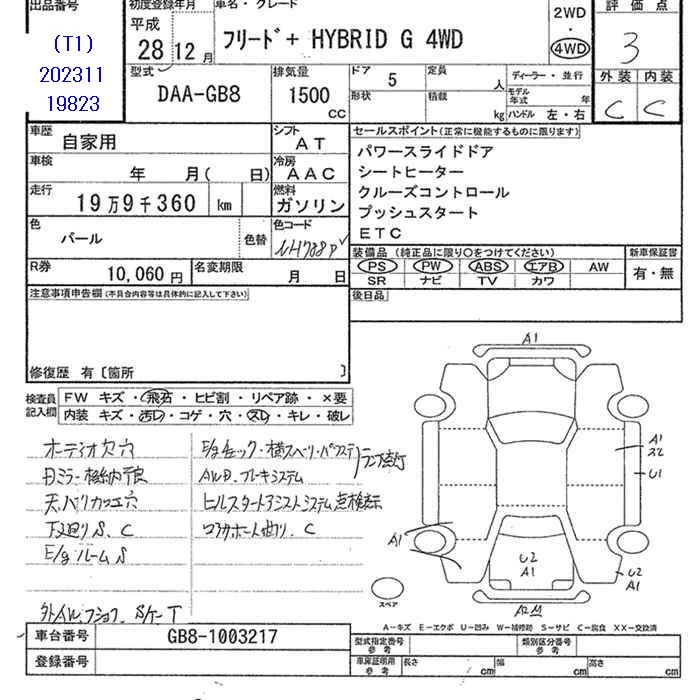 出品番号
(T1)
202311
19823
初度登録年月
平成
28年 12月
車名・グレード
フリード+ HYBRID G 4WD
2WD
・
4WD
評価点
3
外装 内装
C C
型式
DAA-GB8
排気量
1500
CC
ドア 5
定員 人
形状
積載 kg
ディーラー・並行
モデル年式 年
ハンドル 左・右
車歴
自家用
シフト
AT
車検
年 月( 日)
冷房
AAC
走行
19万9千360 km
燃料
ガソリン
色
パール
色替
色コード
NH788P
R券
10,060円
名変期限
月 日
セールスポイント(正常に機能するものに限ります)
パワースライドドア
シートヒーター
クルーズコントロール
プッシュスタート
ETC
装備品 (純正品に限り〇をつけてください)
PS PW ABS エアB AW
SR ナビ TV カワ
新車保証書
有・無
後日品
注意事項申告欄(不具合内容等は具体的に記入して下さい)
修復歴 有〔箇所 〕
検査員
記入欄
FW キズ・飛石・ヒビ割・リペア跡・×要
内装 キズ・汚レ・コゲ・穴・スレ・キレ・破レ
オーディオ欠穴
天.バリカッコ穴
下廻りS、C
E/gルームS
AWD.ブレーキシステム
ランプ点灯
ヒルスタートアシストシステム点検表示
コアサポート曲り、C
A1
A1
U1
A1
U2
A1
U2
A1
スペア
A-キズ E-エクボ U-凹み W-補修跡 S-サビ C-腐食 XX-交換済
車台番号
GB8-1003217
登録番号
型式指定番号
参考
類別区分番号
参考
車庫証明用
参考
長さ cm
幅 cm
高さ cm